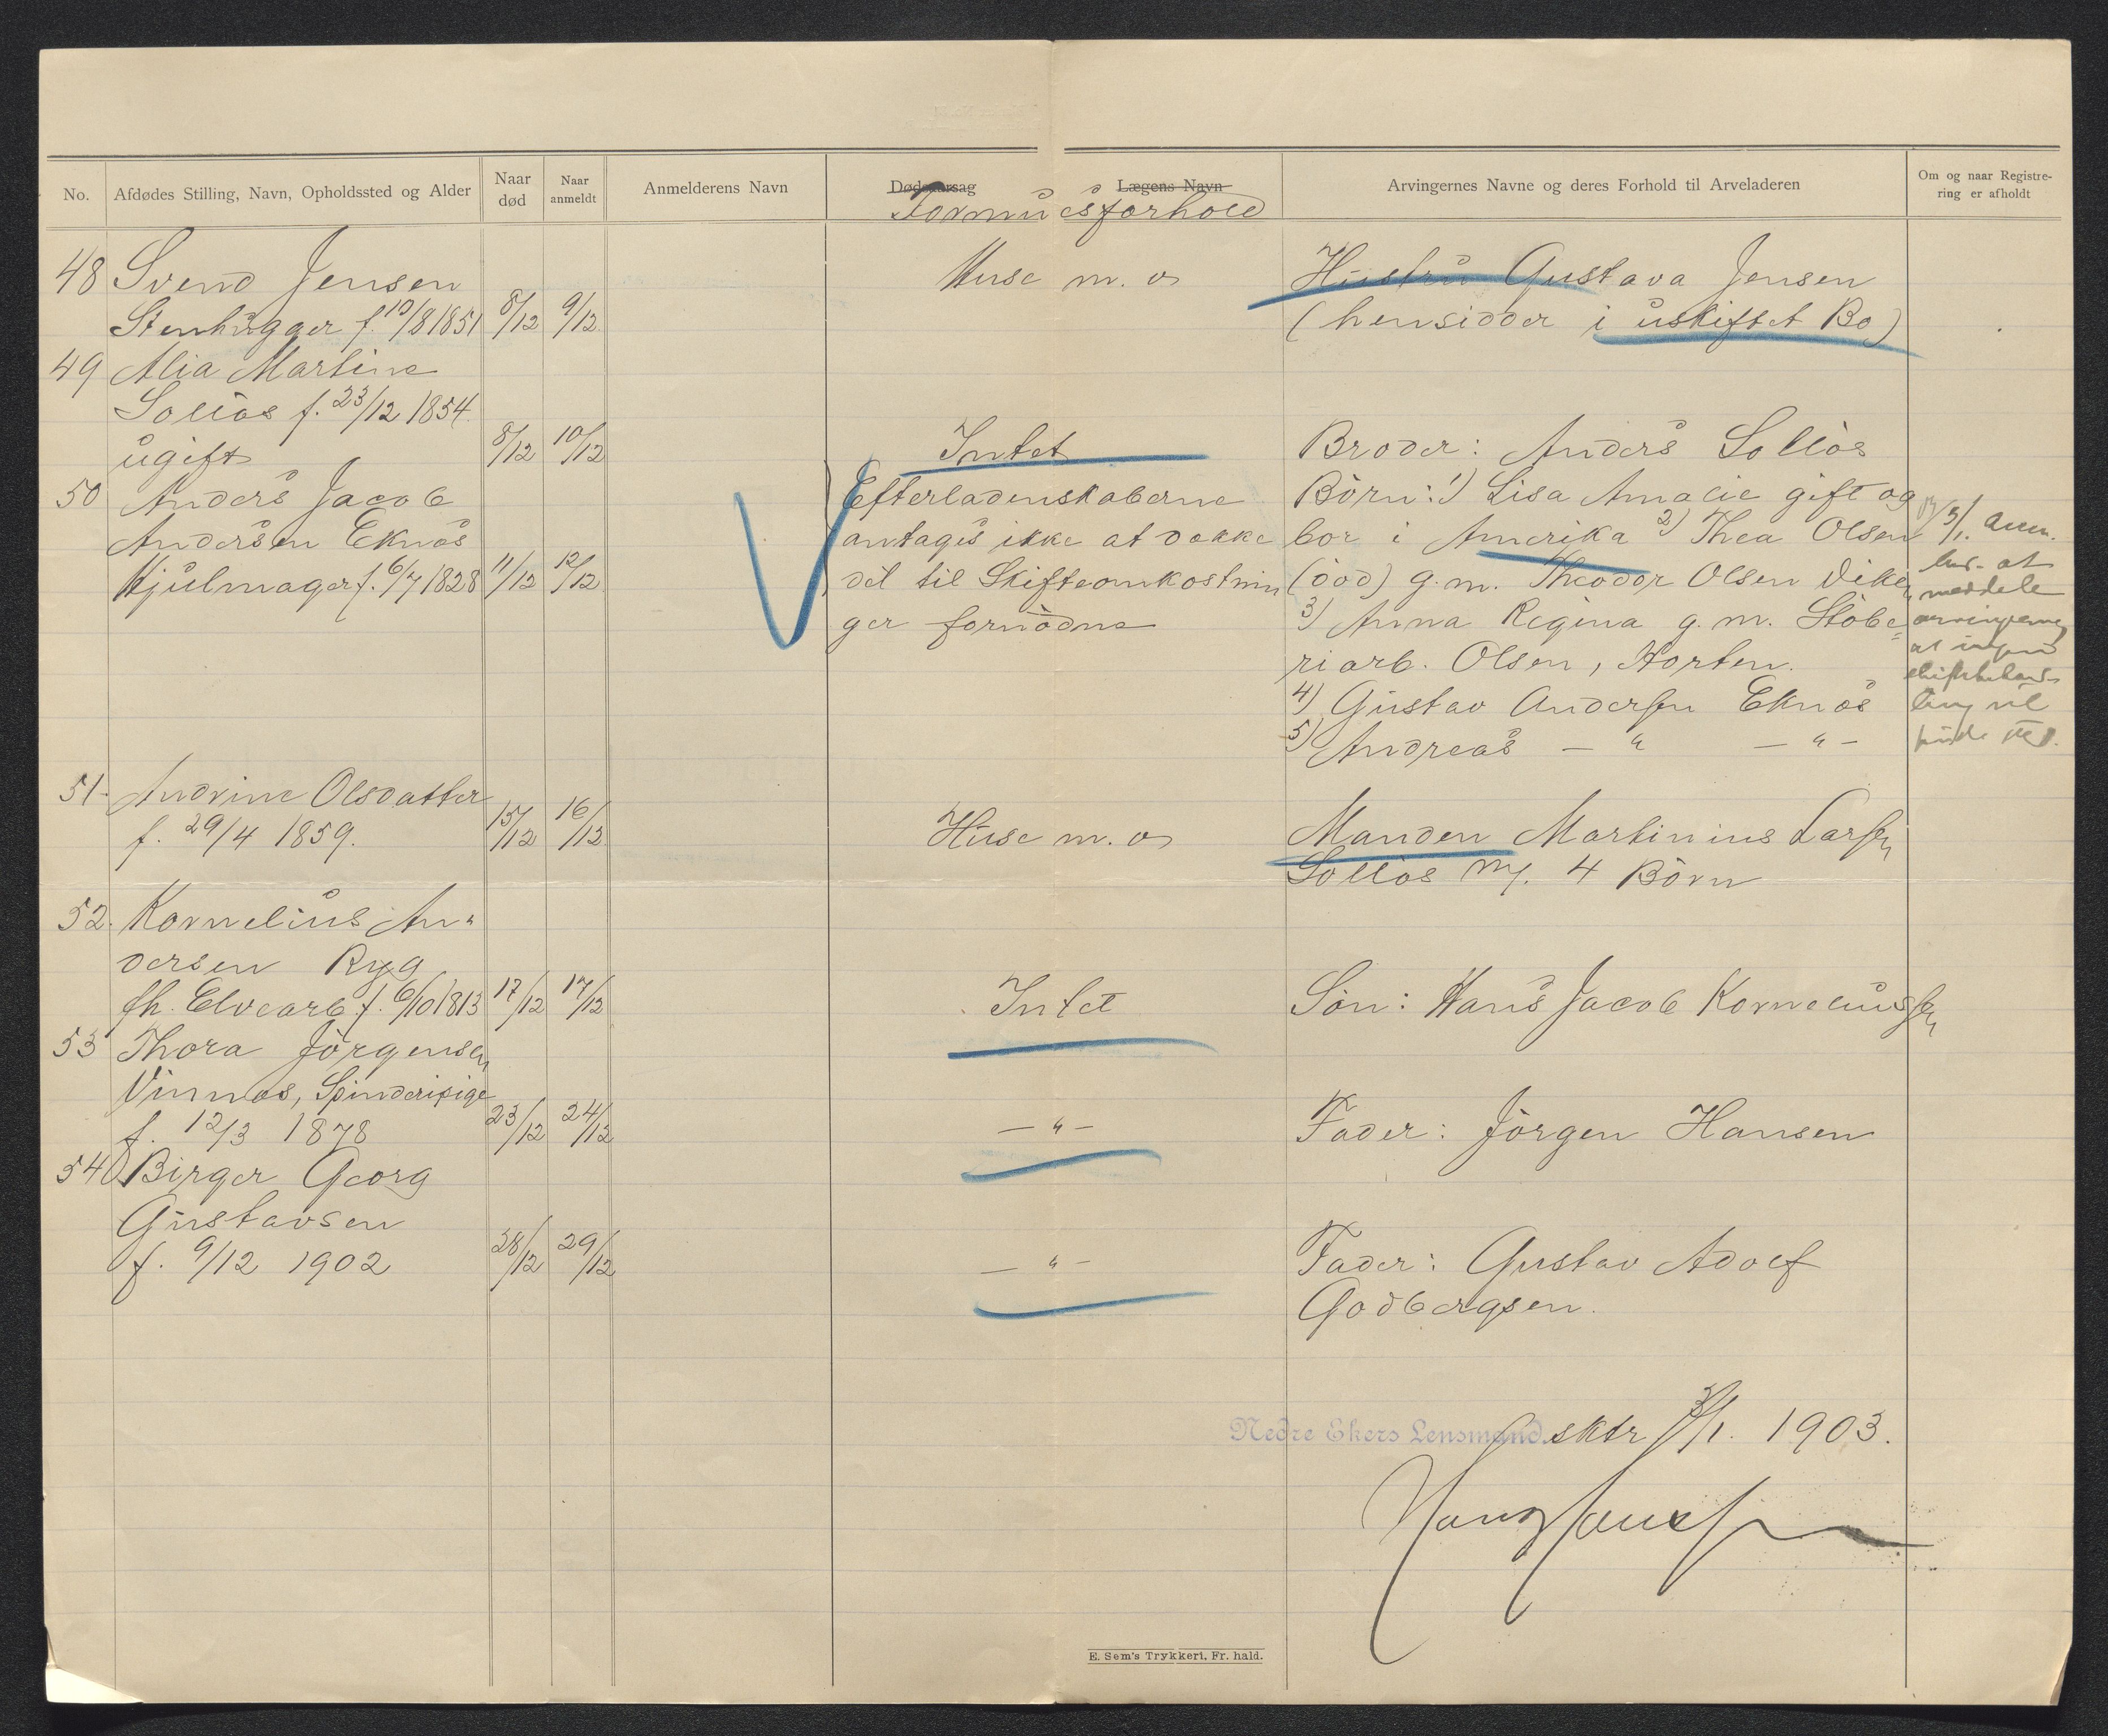 No. Afdødes Stilling, Navn, Opholdssted og Alder Naar død Naar anmeldt Anmelderens Navn Dødsaarsag Lægens Navn Arvingernes Navne og deres Forhold til Arveladeren Om og naar Registrering er afholdt
Formuesforhold
48 Svend Jensen Huse m. v Hustru Gustava Jensen
Stenhugger f. 10/8 1851 8/12 9/12 (hensidder i uskiftet Bo)
49 Alia Martine
Solløs f. 23/12 1854.
ugift 8/12 10/12 Intet Broder: Anders Solløs
50 Anders Jacob Efterladenskaberne Börn: 1) Lisa Amalie gift og
Andersen Eknæs antages ikke at dække bor i Amerika 2) Thea Olsen
Hjulmager f. 6/7 1828 11/12 12/12 det til Skifteomkostnin (død) g. m. Theodor Olsen Viken
ger fornødne 3) Anna Regina g. m. Støbe=
riarb. Olsen, Horten.
4) Gustav Andersen Eknæs
5) Andreas — " — " —
5/1. Anm.
at
meddele
arvingerne
at ingen
skiftebehand-
ling vil
finde sted.
51. Andrine Olsdatter
f. 29/4 1859. 15/12 16/12 Huse m. v Manden Martinius Larsen
Solløs m/. 4 Börn
52. Kornelius An-
dersen Ryg
fh. Elvearb f. 6/10 1813 17/12 17/12 Intet Søn: Hans Jacob Korneliussen
53 Thora Jörgensen
Vinnæs, Spinderipige
f. 12/3 1878 23/12 24/12 — " — Fader: Jörgen Hansen
54 Birger Georg
Gustavsen
f. 9/12 1902 28/12 29/12 — " — Fader: Gustav Adolf
Godbergsen.
Nedre Ekers Lensmand sktr 3/1. 1903.
E. Sem's Trykkeri, Fr. hald.